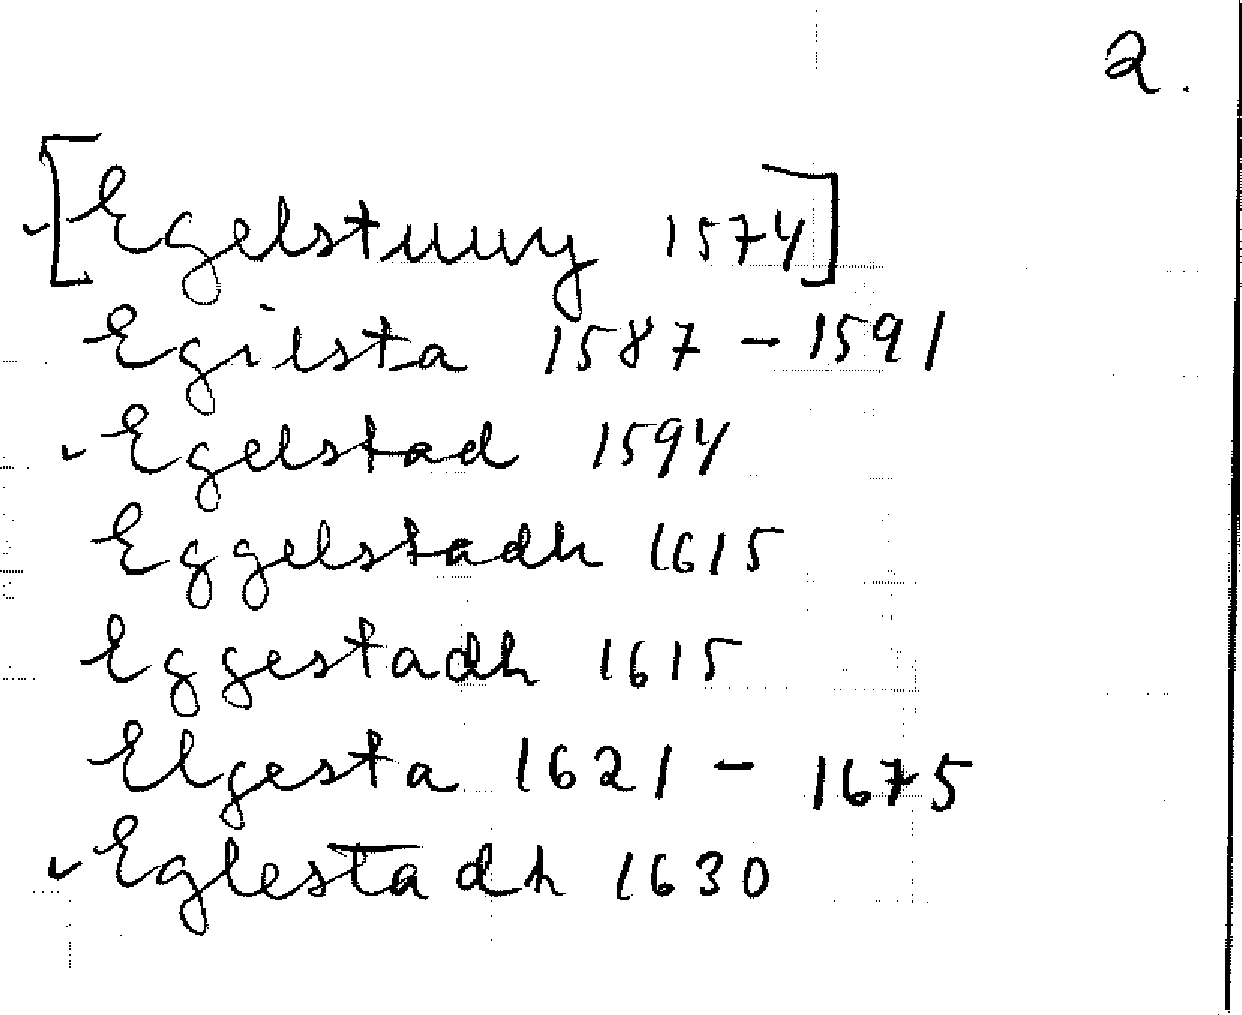 2.
[Egelstuuy 1574]
Egilsta 1587 - 1591
Egelstad 1594
Eggelstadh 1615
Eggestadh 1615
Elgesta 1621 - 1675
Eglestadh 1630